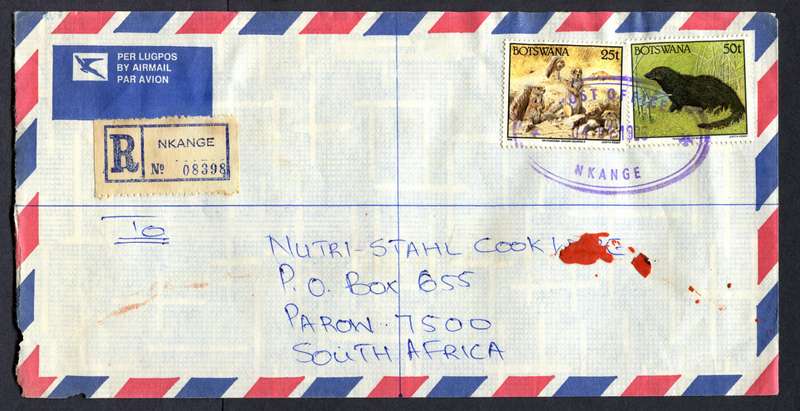 PER LUGPOS
BY AIRMAIL
PAR AVION
BOTSWANA 25t
BOTSWANA 50t
POST OFFICE
NKANGE
R
NKANGE
No 08398
To
NUTRI-STAHL COOKWARE
P.O. BOX 655
PAROW 7500
SOUTH AFRICA